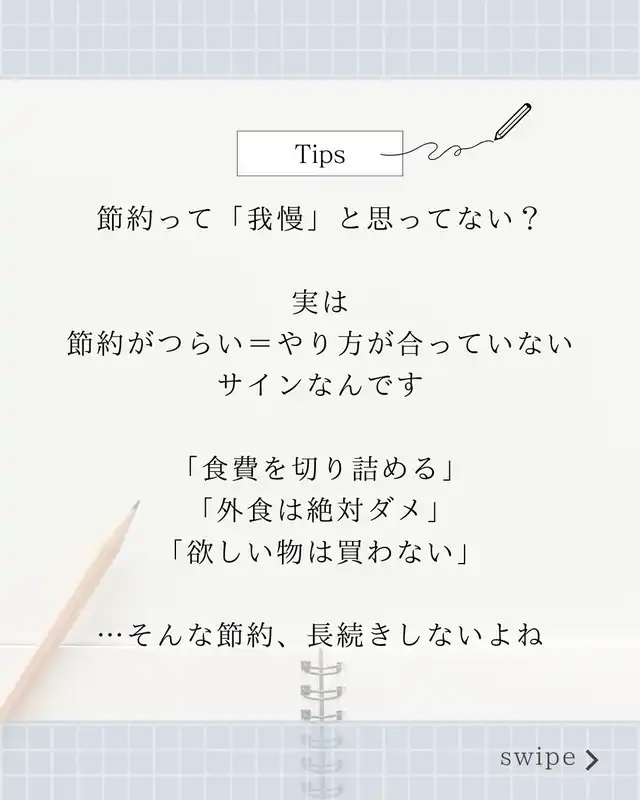 Tips
節約って「我慢」と思ってない？
実は
節約がつらい＝やり方が合っていない
サインなんです
「食費を切り詰める」
「外食は絶対ダメ」
「欲しい物は買わない」
…そんな節約、長続きしないよね
swipe